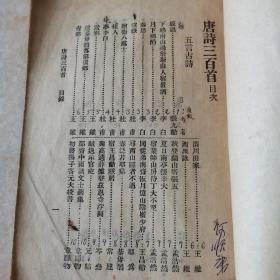 唐詩三百首 目次
五言古詩
感遇 張九齡
下終南山過斛斯山人宿置酒 李白
月下獨酌 李白
春思 李白
望嶽 杜甫
贈衛八處士 杜甫
佳人 杜甫
夢李白 杜甫
送別 王維
送綦毋潛落第還鄉 王維
青谿 王維
渭川田家 王維
西施詠 王維
秋登蘭山寄張五 孟浩然
夏日南亭懷辛大 孟浩然
宿業師山房待丁大不至 孟浩然
同從弟南齋翫月憶山陰崔少府 王昌齡
尋西山隱者不遇
春泛若耶溪 綦毋潛
宿王昌齡隱居 常建
與高適薛據登慈恩寺浮圖 岑參
賊退示官吏 元結
郡齋雨中與諸文士燕集 韋應物
初發揚子寄元大校書 韋應物
唐詩三百首 目錄 一